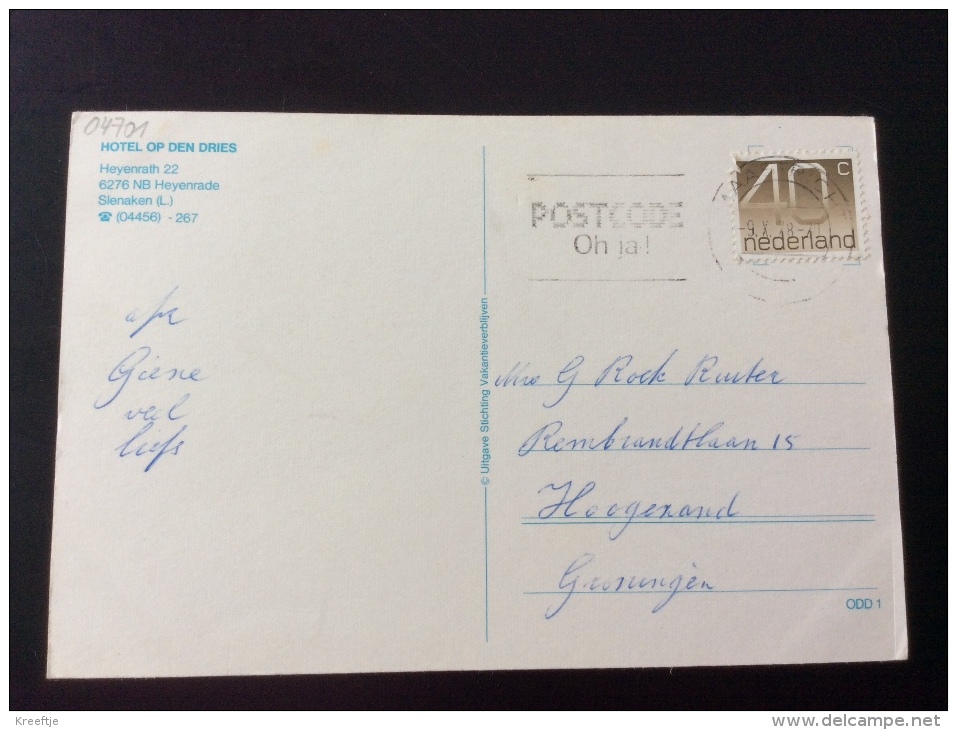 04701
HOTEL OP DEN DRIES
Heyenrath 22
6276 NB Heyenrade
Slenaken (L.)
☎ (04456) - 267
POSTCODE
Oh ja!
40 c
nederland
© Uitgave Stichting Vakantieverblijven
Giene
veel
liefs
G Rock Ruiter
Rembrandtlaan 15
Hoogezand
Groningen
ODD 1
Kreeftje
http://www.delcampe.net